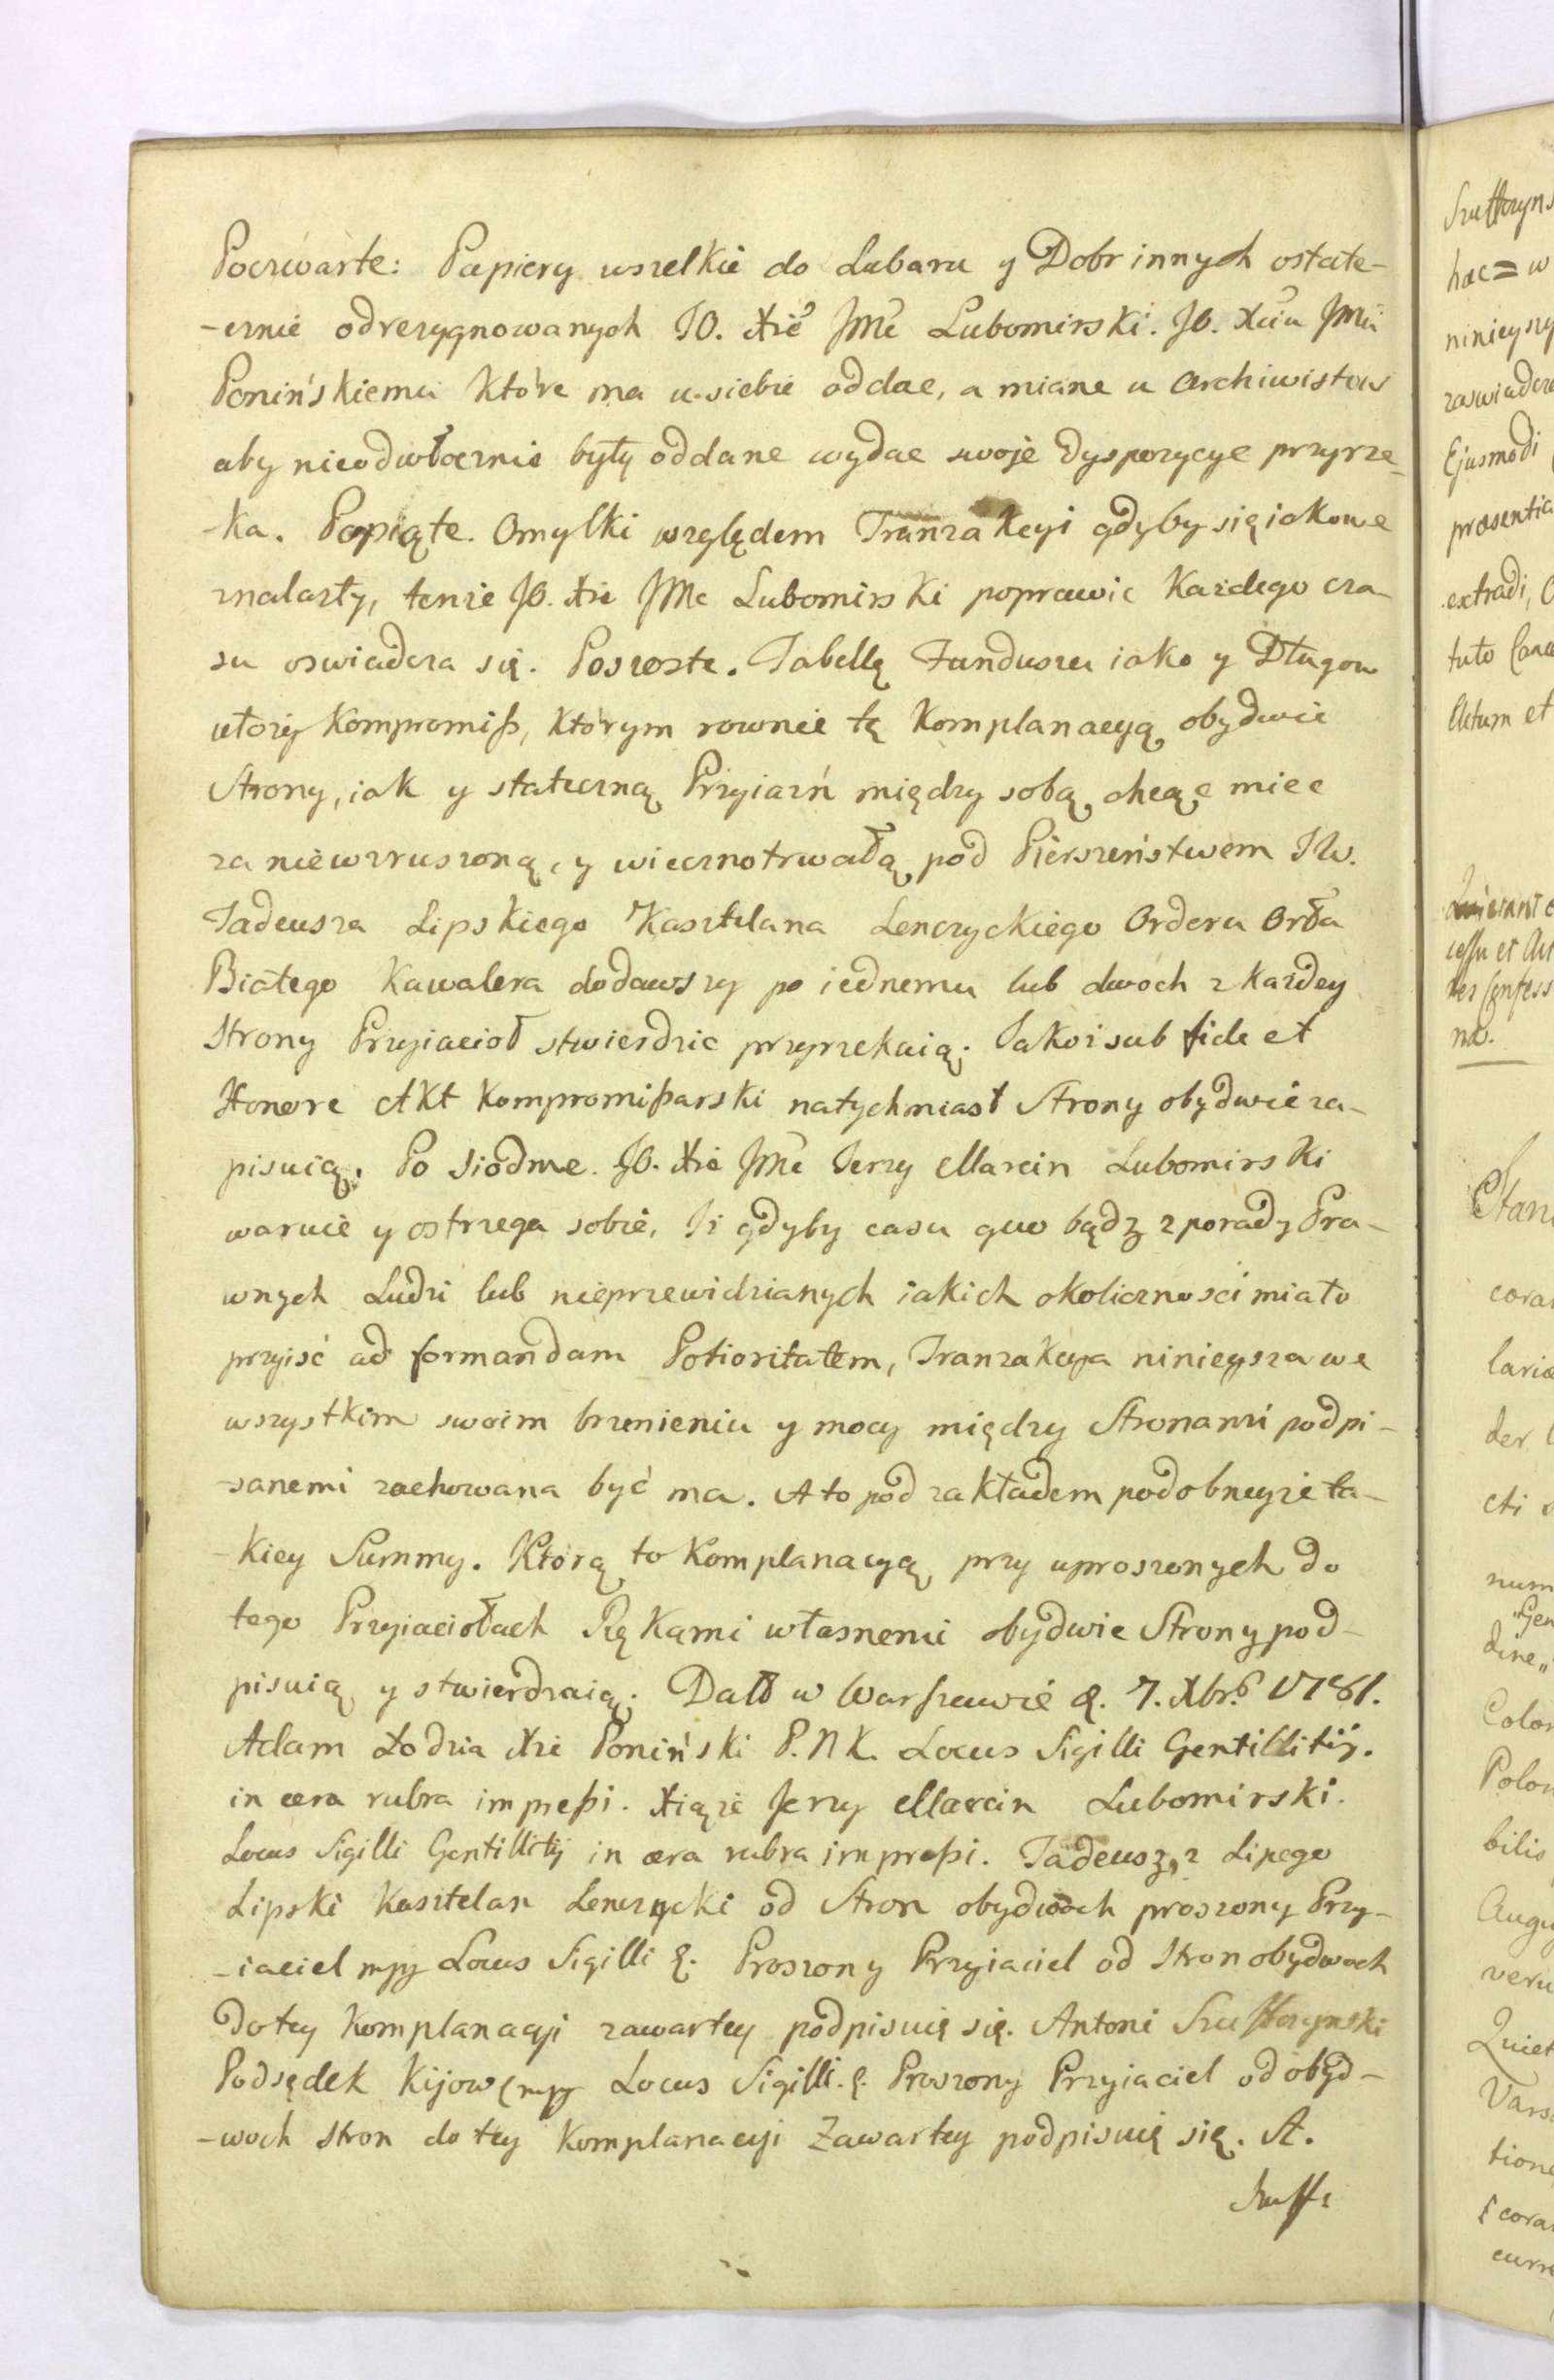 Poczwarte: Papiery wszelkie do Lubaru y Dobr innych ostate-
-cznie odrezygnowanych JO. Xże JMć Lubomirski. JO. Xciu JMci
Ponińskiemu które ma u siebie oddać, a miane u Archiwistów
aby nieodwłocznie były oddane wydać swoje Dyspozycye przyrze-
-ka. Popiąte. Omyłki względem Tranzakcyi gdyby się iakowe
znalazły, tenże JO. Xże JMć Lubomirski poprawić każdego cza-
su oswiadcza się. Poszoste. Tabellę Funduszu iako y Długow
ułoży Kompromiß, którym rownie tę Komplanacyą obydwie
Strony, iak y stateczną Przyiaźń między sobą chcąc mieć
za niewzruszoną, y wiecznotrwałą pod Pierszeństwem JW.
Tadeusza Lipskiego Kasztelana Lenczyckiego Orderu Orła
Białego Kawalera dodawszy po iednemu lub dwoch z każdey
Strony Przyiacioł stwierdzić przyrzekaią. Jakoż sub fide et
Honore Akt Kompromißarski natychmiast Strony obydwie za-
pisuią. Po Siódme. JO. Xże JMć Jerzy Marcin Lubomirski
waruie y ostrzega sobie, Iż gdyby casu quo bądz z porady Pra-
wnych Ludzi lub nieprzewidzianych iakich okoliczności miało
przyiść ad formandam Potioritatem, Tranzakcya ninieysza we
wszystkim swoim brzmieniu y mocy między Stronami podpi-
-sanemi zachowana być ma. A to pod zakładem podobneyże ta-
-kiey Summy. Którą to Komplanacyą przy uproszonych do
tego Przyiaciołach Rękami własnemi obydwie Strony pod-
pisuią y stwierdzaią. Datt w Warszawie d. 7. Xbr. 1781.
Adam Łodzia Xże Poniński P.N.K. Locus Sigilli Gentillitij.
in cera rubra impreßi. Xiąże Jerzy Marcin Lubomirski.
Locus Sigilli Gentillitij in cera rubra impreßi. Tadeusz z Lipego
Lipski Kasztelan Lenczycki od Stron obydwoch proszony Przy-
-iaciel mpp Locus Sigilli Proszony Przyiaciel od Stron obydwoch
do tey Komplanacyi zawartey podpisuię się. Antoni
Podsędek Kijow. mpp Locus Sigilli. Proszony Przyiaciel od obyd-
-woch Stron do tey Komplanacyi Zawartey podpisuię się. A.
hac = w
ninieyszy
Ejusmodi
extradi,
Actum et
na.
der
cti
num
Augu
Vars
tione